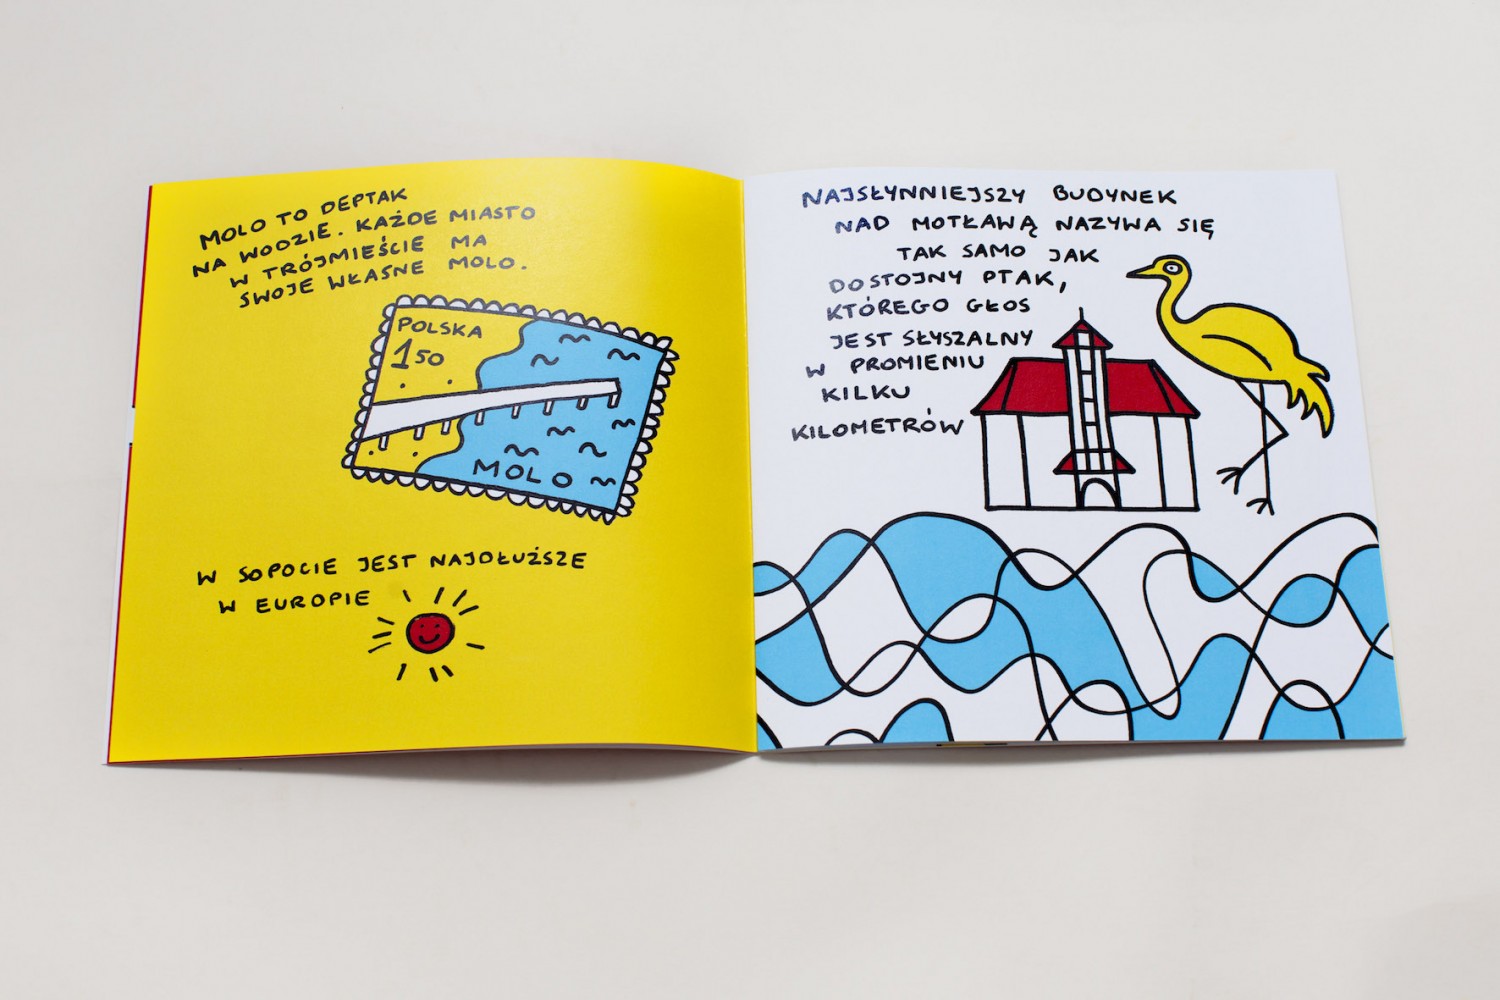 MOLO TO DEPTAK
NA WODZIE. KAŻDE MIASTO
W TRÓJMIEŚCIE MA
SWOJE WŁASNE MOLO.
POLSKA
1 50
MOLO
W SOPOCIE JEST NAJDŁUŻSZE
W EUROPIE
NAJSŁYNNIEJSZY BUDYNEK
NAD MOTŁAWĄ NAZYWA SIĘ
TAK SAMO JAK
DOSTOJNY PTAK,
KTÓREGO GŁOS
JEST SŁYSZALNY
W PROMIENIU
KILKU
KILOMETRÓW